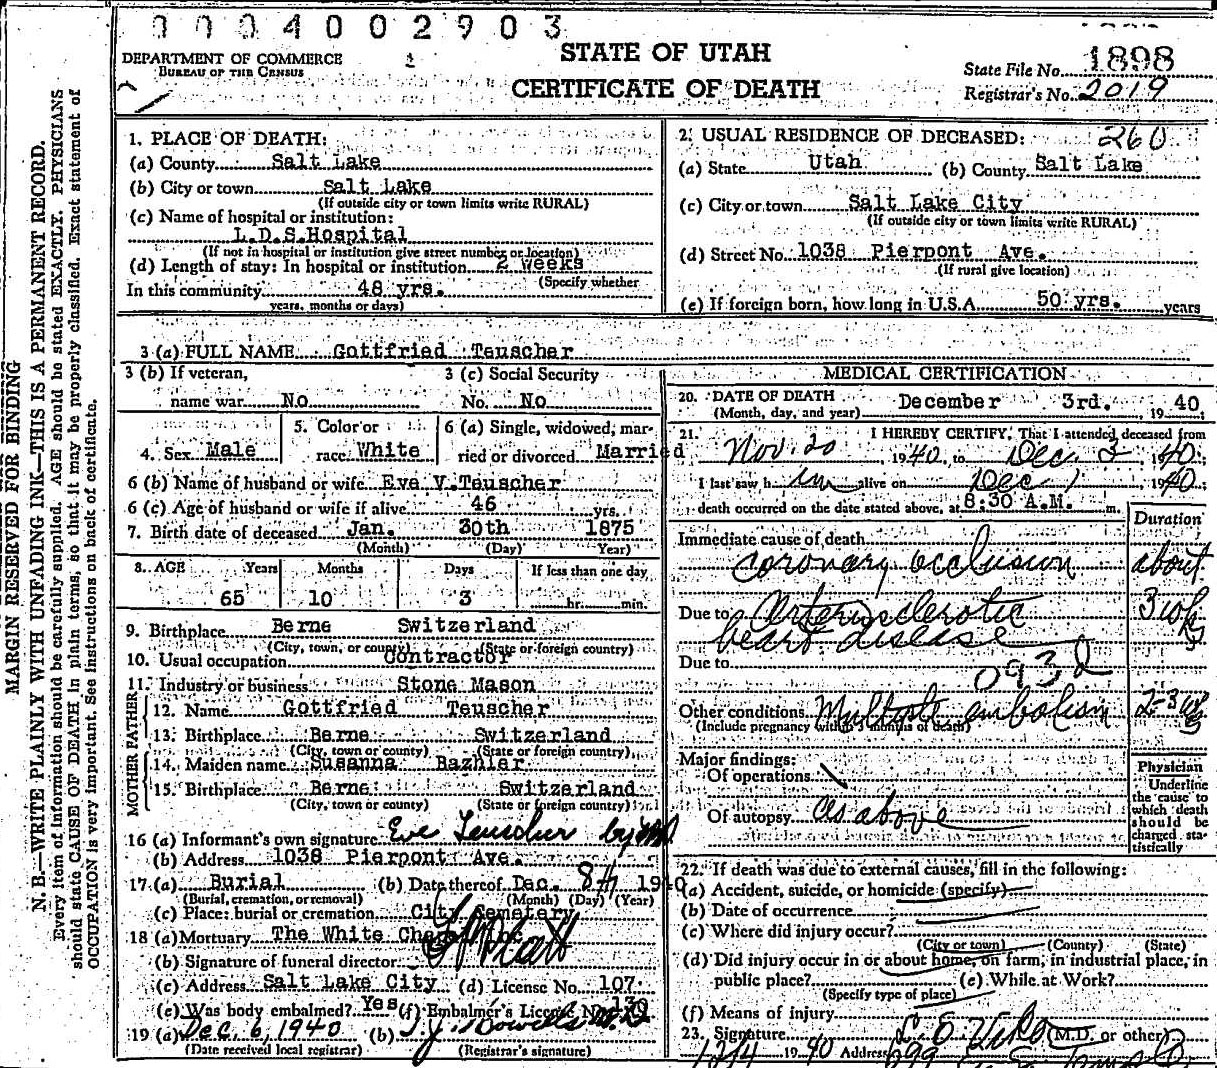 0004002903
DEPARTMENT OF COMMERCE
BUREAU OF THE CENSUS
STATE OF UTAH
CERTIFICATE OF DEATH
State File No. 1898
Registrar's No. 2019
MARGIN RESERVED FOR BINDING
N. B.—WRITE PLAINLY WITH UNFADING INK—THIS IS A PERMANENT RECORD.
Every item of information should be carefully supplied. AGE should be stated EXACTLY. PHYSICIANS
should state CAUSE OF DEATH in plain terms, so that it may be properly classified. Exact statement of
OCCUPATION is very important. See instructions on back of certificate.
1. PLACE OF DEATH:
(a) County Salt Lake
(b) City or town Salt Lake
(If outside city or town limits write RURAL)
(c) Name of hospital or institution:
L.D.S.Hospital
(If not in hospital or institution give street number or location)
(d) Length of stay: In hospital or institution 2 weeks
(Specify whether
In this community 48 yrs.
years, months or days)
2. USUAL RESIDENCE OF DECEASED: 260
(a) State Utah (b) County Salt Lake
(c) City or town Salt Lake City
(If outside city or town limits write RURAL)
(d) Street No. 1038 Pierpont Ave.
(If rural give location)
(e) If foreign born, how long in U.S.A. 50 yrs. years
3 (a) FULL NAME Gottfried Teuscher
3 (b) If veteran, 3 (c) Social Security
name war No No. No
4. Sex Male 5. Color or race White 6 (a) Single, widowed, married or divorced Married
6 (b) Name of husband or wife Eve V.Teuscher
6 (c) Age of husband or wife if alive 46 yrs.
7. Birth date of deceased Jan. 30th 1875
(Month) (Day) Year)
8. AGE Years Months Days If less than one day
65 10 3 hr. min.
9. Birthplace Berne Switzerland
(City, town, or county) (State or foreign country)
10. Usual occupation Contractor
11. Industry or business Stone Mason
FATHER
12. Name Gottfried Teuscher
13. Birthplace Berne Switzerland
(City, town or county) (State or foreign country)
MOTHER
14. Maiden name Susanna Bazhler
15. Birthplace Berne Switzerland
(City, town or county) (State or foreign country)
16 (a) Informant's own signature Eve Teuscher by
(b) Address 1038 Pierpont Ave.
17. (a) Burial (b) Date thereof Dec. 8th 1940
(Burial, cremation, or removal) (Month) (Day) (Year)
(c) Place: burial or cremation City Cemetery
18 (a) Mortuary The White Chapel Inc
(b) Signature of funeral director
(c) Address Salt Lake City (d) License No. 107
(e) Was body embalmed? Yes (f) Embalmer's License No. 130
19 (a) Dec. 6, 1940 (b) T. J. Howells M.D.
(Date received local registrar) (Registrar's signature)
MEDICAL CERTIFICATION
20. DATE OF DEATH December 3rd. 1940
(Month, day, and year)
21. I HEREBY CERTIFY, That I attended deceased from
Nov. 20 1940, to Dec 3 1940;
I last saw him alive on Dec 1940;
death occurred on the date stated above, at 8:30 A.M. m.
Duration
Immediate cause of death
coronary occlusion about
Due to Arteriosclerotic
heart disease
Due to
093d
Other conditions Multiple embolism 2-3
(Include pregnancy within 3 months of death)
Major findings:
Of operations
Of autopsy as above
Physician
Underline
the cause to
which death
should be
charged sta-
tistically
22. If death was due to external causes, fill in the following:
(a) Accident, suicide, or homicide (specify)
(b) Date of occurrence
(c) Where did injury occur?
(City or town) (County) (State)
(d) Did injury occur in or about home, on farm, in industrial place, in
public place? (e) While at Work?
(Specify type of place)
(f) Means of injury
23. Signature L. E. (M.D. or other)
12/4 1940 Address 699